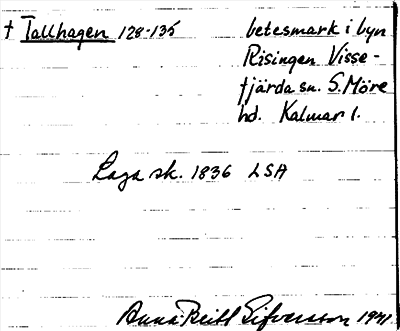 † Tallhagen 128-135 betesmark i byn
Risingen Visse-
fjärda sn. S. Möre
hd. Kalmar l.
Laga sk. 1836 LSA
Anna-Britt Sifversson 1941